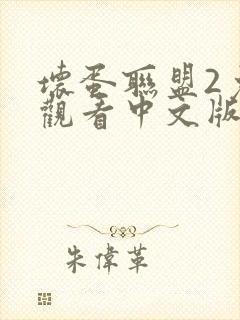 壞蛋聯盟2
觀看中文版
朱偉革